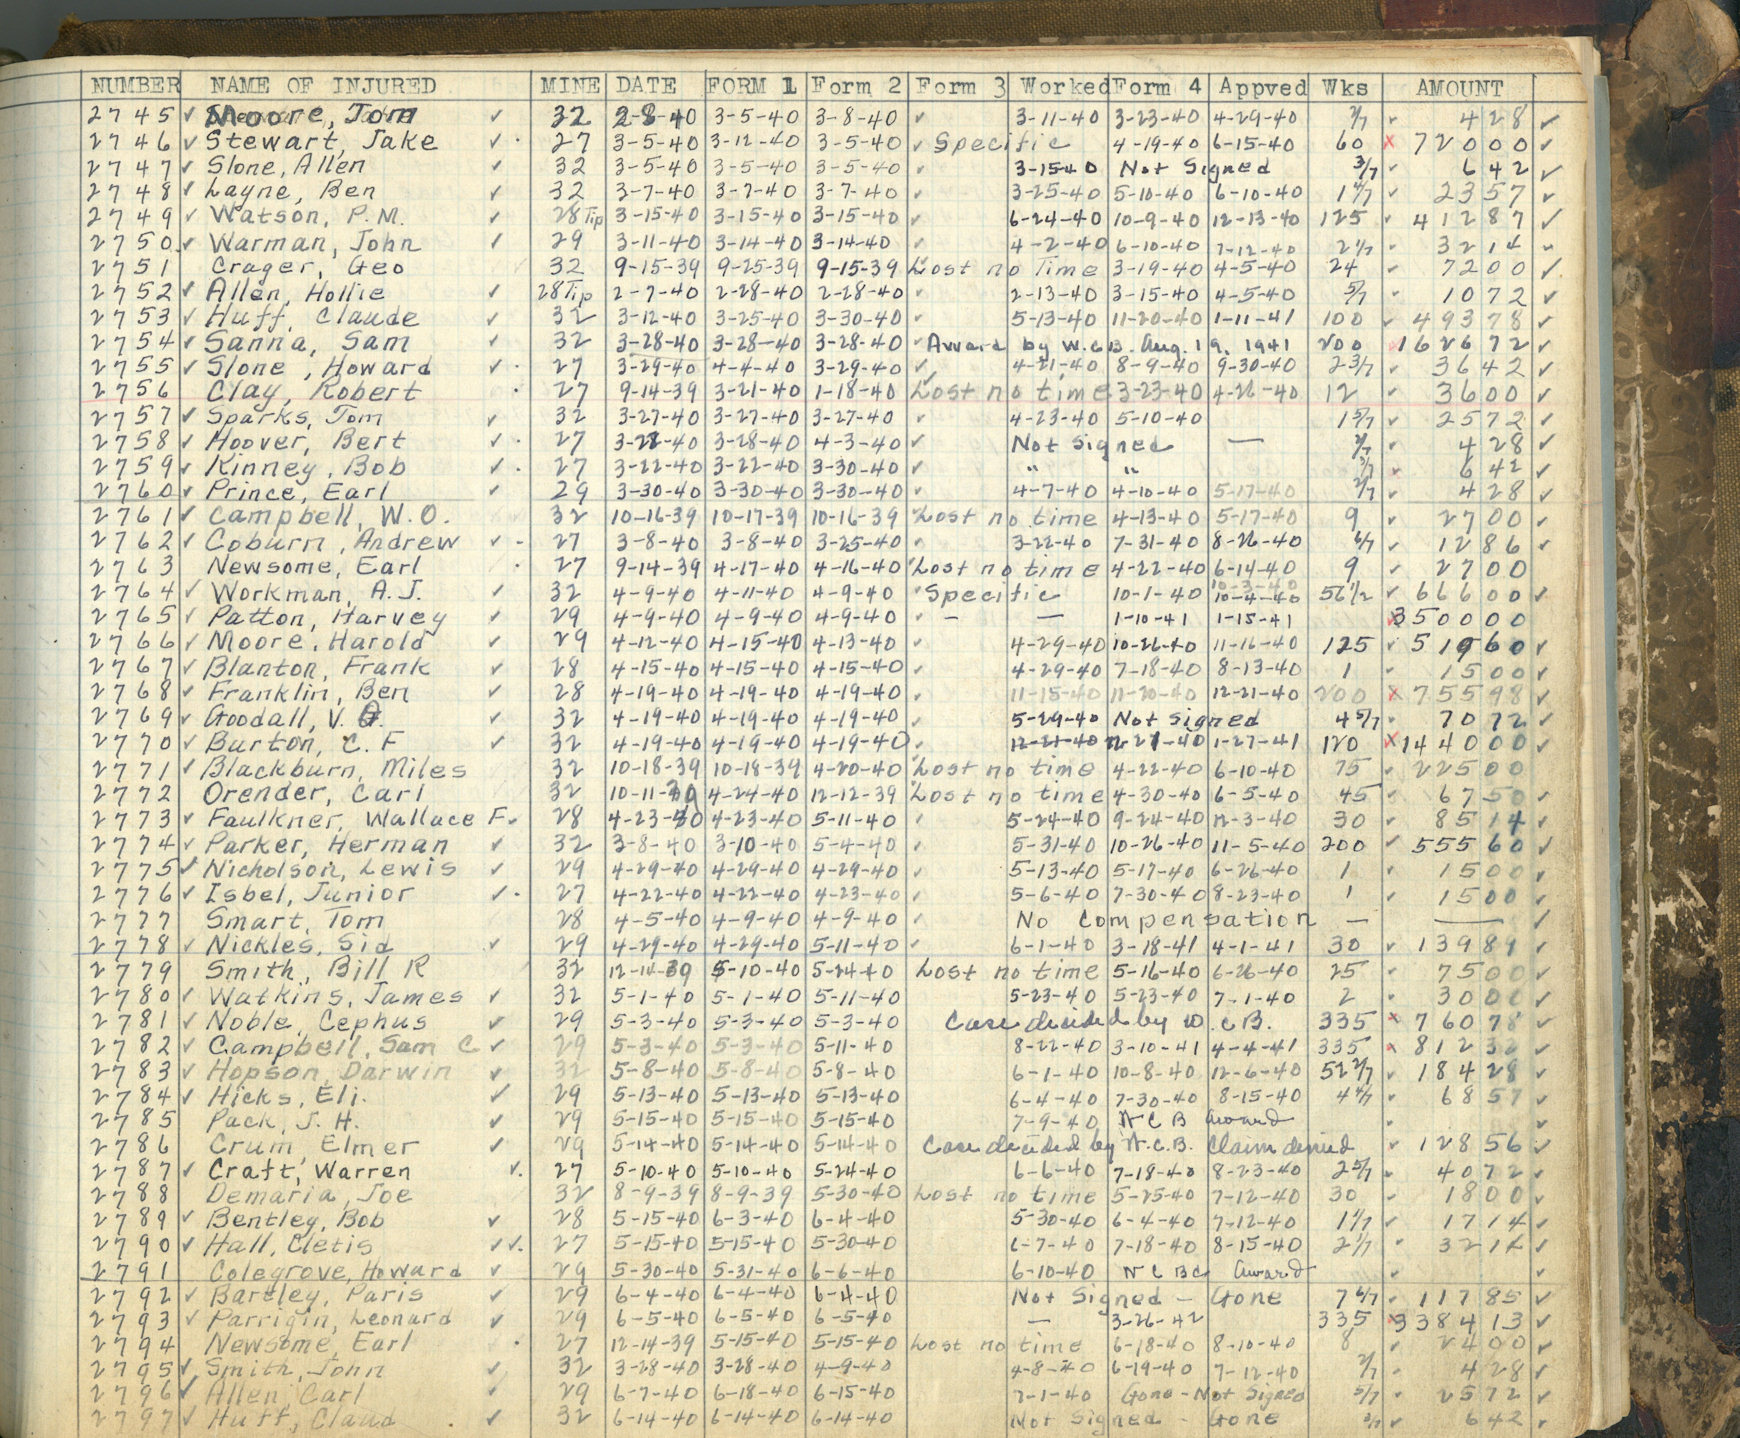 NUMBER NAME OF INJURED MINE DATE FORM 1 Form 2 Form 3 Worked Form 4 Appved Wks AMOUNT
2745 ✓ Moore, Tom ✓ 32 2-8-40 3-5-40 3-8-40 ✓ 3-11-40 3-23-40 4-29-40 2/7 ✓ 428 ✓
2746 ✓ Stewart, Jake ✓ . 27 3-5-40 3-12-40 3-5-40 ✓ Specific 4-19-40 6-15-40 60 x 72000 ✓
2747 ✓ Slone, Allen ✓ 32 3-5-40 3-5-40 3-5-40 ✓ 3-15-40 Not Signed 3/7 ✓ 642 ✓
2748 ✓ Layne, Ben ✓ 32 3-7-40 3-7-40 3-7-40 ✓ 3-25-40 5-10-40 6-10-40 1 4/7 ✓ 2357 ✓
2749 ✓ Watson, P.M. ✓ 28 Tip 3-15-40 3-15-40 3-15-40 ✓ 6-24-40 10-9-40 12-13-40 125 ✓ 41287 ✓
2750 ✓ Warman, John ✓ 29 3-11-40 3-14-40 3-14-40 ✓ 4-2-40 6-10-40 7-12-40 2 1/7 ✓ 3214 ✓
2751 Crager, Geo 32 9-15-39 9-25-39 9-15-39 Lost no Time 3-19-40 4-5-40 24 ✓ 7200 ✓
2752 ✓ Allen, Hollie ✓ 28 Tip 2-7-40 2-28-40 2-28-40 ✓ 2-13-40 3-15-40 4-5-40 5/7 ✓ 1072 ✓
2753 ✓ Huff, Claude ✓ 32 3-12-40 3-25-40 3-30-40 ✓ 5-13-40 11-20-40 1-11-41 100 ✓ 49378 ✓
2754 ✓ Sanna, Sam ✓ 32 3-28-40 3-28-40 3-28-40 ✓ Award by W.C.B. Aug. 19, 1941 200 x 162672 ✓
2755 ✓ Slone, Howard ✓ . 27 3-29-40 4-4-40 3-29-40 ✓ 4-21-40 8-9-40 9-30-40 2 3/7 ✓ 3642 ✓
2756 Clay, Robert . 27 9-14-39 3-21-40 1-18-40 Lost no time 3-23-40 4-26-40 12 ✓ 3600 ✓
2757 ✓ Sparks, Tom ✓ 32 3-27-40 3-27-40 3-27-40 ✓ 4-23-40 5-10-40 1 5/7 ✓ 2572 ✓
2758 ✓ Hoover, Bert ✓ . 27 3-28-40 3-28-40 4-3-40 ✓ Not Signed — 2/7 ✓ 428 ✓
2759 ✓ Kinney, Bob ✓ . 27 3-22-40 3-22-40 3-30-40 ✓ " " 3/7 ✓ 642 ✓
2760 ✓ Prince, Earl ✓ 29 3-30-40 3-30-40 3-30-40 ✓ 4-7-40 4-10-40 5-17-40 2/7 ✓ 428 ✓
2761 ✓ Campbell, W.O. 32 10-16-39 10-17-39 10-16-39 Lost no time 4-13-40 5-17-40 9 ✓ 2700 ✓
2762 ✓ Coburn, Andrew ✓ . 27 3-8-40 3-8-40 3-25-40 ✓ 3-22-40 7-31-40 8-26-40 6/7 ✓ 1286 ✓
2763 Newsome, Earl . 27 9-14-39 4-17-40 4-16-40 Lost no time 4-22-40 6-14-40 9 ✓ 2700
2764 ✓ Workman, A.J. ✓ 32 4-9-40 4-11-40 4-9-40 ✓ Specific 10-1-40 10-3-40 10-4-40 56 1/2 ✓ 66600 ✓
2765 ✓ Patton, Harvey ✓ 29 4-9-40 4-9-40 4-9-40 ✓ — — 1-10-41 1-15-41 x 350000
2766 ✓ Moore, Harold ✓ 29 4-12-40 4-15-40 4-13-40 ✓ 4-29-40 10-26-40 11-16-40 125 ✓ 51960 ✓
2767 ✓ Blanton, Frank ✓ 28 4-15-40 4-15-40 4-15-40 ✓ 4-29-40 7-18-40 8-13-40 1 ✓ 1500 ✓
2768 ✓ Franklin, Ben ✓ 28 4-19-40 4-19-40 4-19-40 ✓ 11-15-40 11-20-40 12-21-40 200 x 75598 ✓
2769 ✓ Goodall, V. G. ✓ 32 4-19-40 4-19-40 4-19-40 ✓ 5-29-40 Not Signed 4 5/7 ✓ 7072 ✓
2770 ✓ Burton, C. F ✓ 32 4-19-40 4-19-40 4-19-40 ✓ 12-21-40 12-27-40 1-27-41 120 x 144000 ✓
2771 ✓ Blackburn, Miles 32 10-18-39 10-18-39 4-20-40 Lost no time 4-22-40 6-10-40 75 ✓ 22500
2772 Orender, Carl 32 10-11-39 4-24-40 12-12-39 Lost no time 4-30-40 6-5-40 45 ✓ 6750 ✓
2773 ✓ Faulkner, Wallace F. ✓ 28 4-23-40 4-23-40 5-11-40 ✓ 5-24-40 9-24-40 12-3-40 30 ✓ 8514 ✓
2774 ✓ Parker, Herman ✓ 32 3-8-40 3-10-40 5-4-40 ✓ 5-31-40 10-26-40 11-5-40 200 ✓ 55560 ✓
2775 ✓ Nicholson, Lewis ✓ 29 4-29-40 4-29-40 4-29-40 ✓ 5-13-40 5-17-40 6-26-40 1 ✓ 1500 ✓
2776 ✓ Isbel, Junior ✓ . 27 4-22-40 4-22-40 4-23-40 ✓ 5-6-40 7-30-40 8-23-40 1 ✓ 1500 ✓
2777 Smart, Tom 28 4-5-40 4-9-40 4-9-40 ✓ No Compensation — — ✓
2778 ✓ Nickles, Sid ✓ 29 4-29-40 4-29-40 5-11-40 ✓ 6-1-40 3-18-41 4-1-41 30 ✓ 13989 ✓
2779 Smith, Bill R 32 12-14-39 5-10-40 5-24-40 Lost no time 5-16-40 6-26-40 25 ✓ 7500 ✓
2780 ✓ Watkins, James ✓ 32 5-1-40 5-1-40 5-11-40 5-23-40 5-23-40 7-1-40 2 ✓ 3000 ✓
2781 ✓ Noble, Cephus ✓ 29 5-3-40 5-3-40 5-3-40 Case decided by W.C.B. 335 x 76078 ✓
2782 ✓ Campbell, Sam C ✓ 29 5-3-40 5-3-40 5-11-40 8-22-40 3-10-41 4-4-41 335 x 81232 ✓
2783 ✓ Hopson, Darwin ✓ 32 5-8-40 5-8-40 5-8-40 6-1-40 10-8-40 12-6-40 52 2/7 ✓ 18428 ✓
2784 ✓ Hicks, Eli. ✓ 29 5-13-40 5-13-40 5-13-40 6-4-40 7-30-40 8-15-40 4 4/7 ✓ 6857 ✓
2785 Pack, J. H. ✓ 29 5-15-40 5-15-40 5-15-40 7-9-40 W C B award ✓ ✓
2786 Crum, Elmer ✓ 29 5-14-40 5-14-40 5-14-40 Case decided by W.C.B. Claim denied ✓ 12856 ✓
2787 ✓ Craft, Warren ✓. 27 5-10-40 5-10-40 5-24-40 6-6-40 7-18-40 8-23-40 2 5/7 ✓ 4072 ✓
2788 Demaria, Joe 32 8-9-39 8-9-39 5-30-40 Lost no time 5-25-40 7-12-40 30 ✓ 1800 ✓
2789 ✓ Bentley, Bob ✓ 28 5-15-40 6-3-40 6-4-40 5-30-40 6-4-40 7-12-40 1 1/7 ✓ 1714 ✓
2790 ✓ Hall, Cletis ✓✓. 27 5-15-40 5-15-40 5-30-40 6-7-40 7-18-40 8-15-40 2 1/7 ✓ 3214 ✓
2791 Colegrove, Howard ✓ 29 5-30-40 5-31-40 6-6-40 6-10-40 W C B Award ✓ ✓
2792 ✓ Bartley, Paris ✓ 29 6-4-40 6-4-40 6-4-40 Not Signed - Gone 7 6/7 ✓ 11785 ✓
2793 ✓ Parrigin, Leonard ✓ 29 6-5-40 6-5-40 6-5-40 — 3-26-42 335 x 338413 ✓
2794 Newsome, Earl . 27 12-14-39 5-15-40 5-15-40 Lost no time 6-18-40 8-10-40 8 ✓ 2400 ✓
2795 ✓ Smith, John ✓ 32 3-28-40 3-28-40 4-9-40 4-8-40 6-19-40 7-12-40 2/7 ✓ 428 ✓
2796 ✓ Allen, Carl ✓ 29 6-7-40 6-18-40 6-15-40 7-1-40 Gone - Not Signed 5/7 ✓ 2572 ✓
2797 ✓ Huff, Claud . ✓ 32 6-14-40 6-14-40 6-14-40 Not Signed - Gone 3/7 ✓ 642 ✓